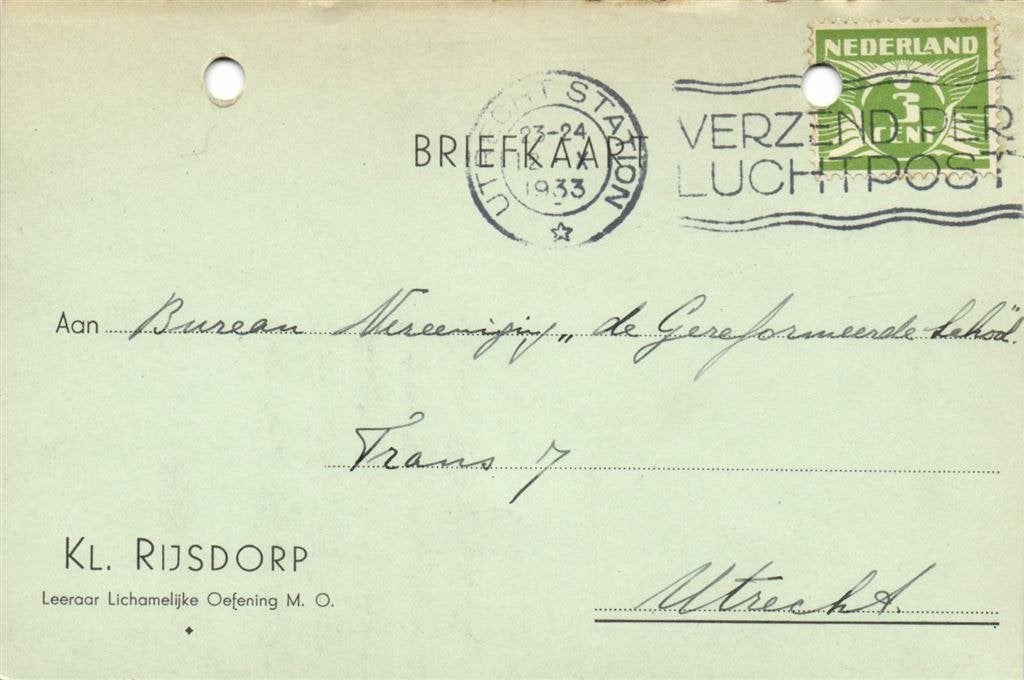 NEDERLAND
3
CENT
UTRECHT STATION
23-24
12 X
1933
VERZEND PER
LUCHTPOST
BRIEFKAART
Aan Bureau Vereeniging „de Gereformeerde School".
Trans 7
Utrecht.
KL. RIJSDORP
Leeraar Lichamelijke Oefening M. O.